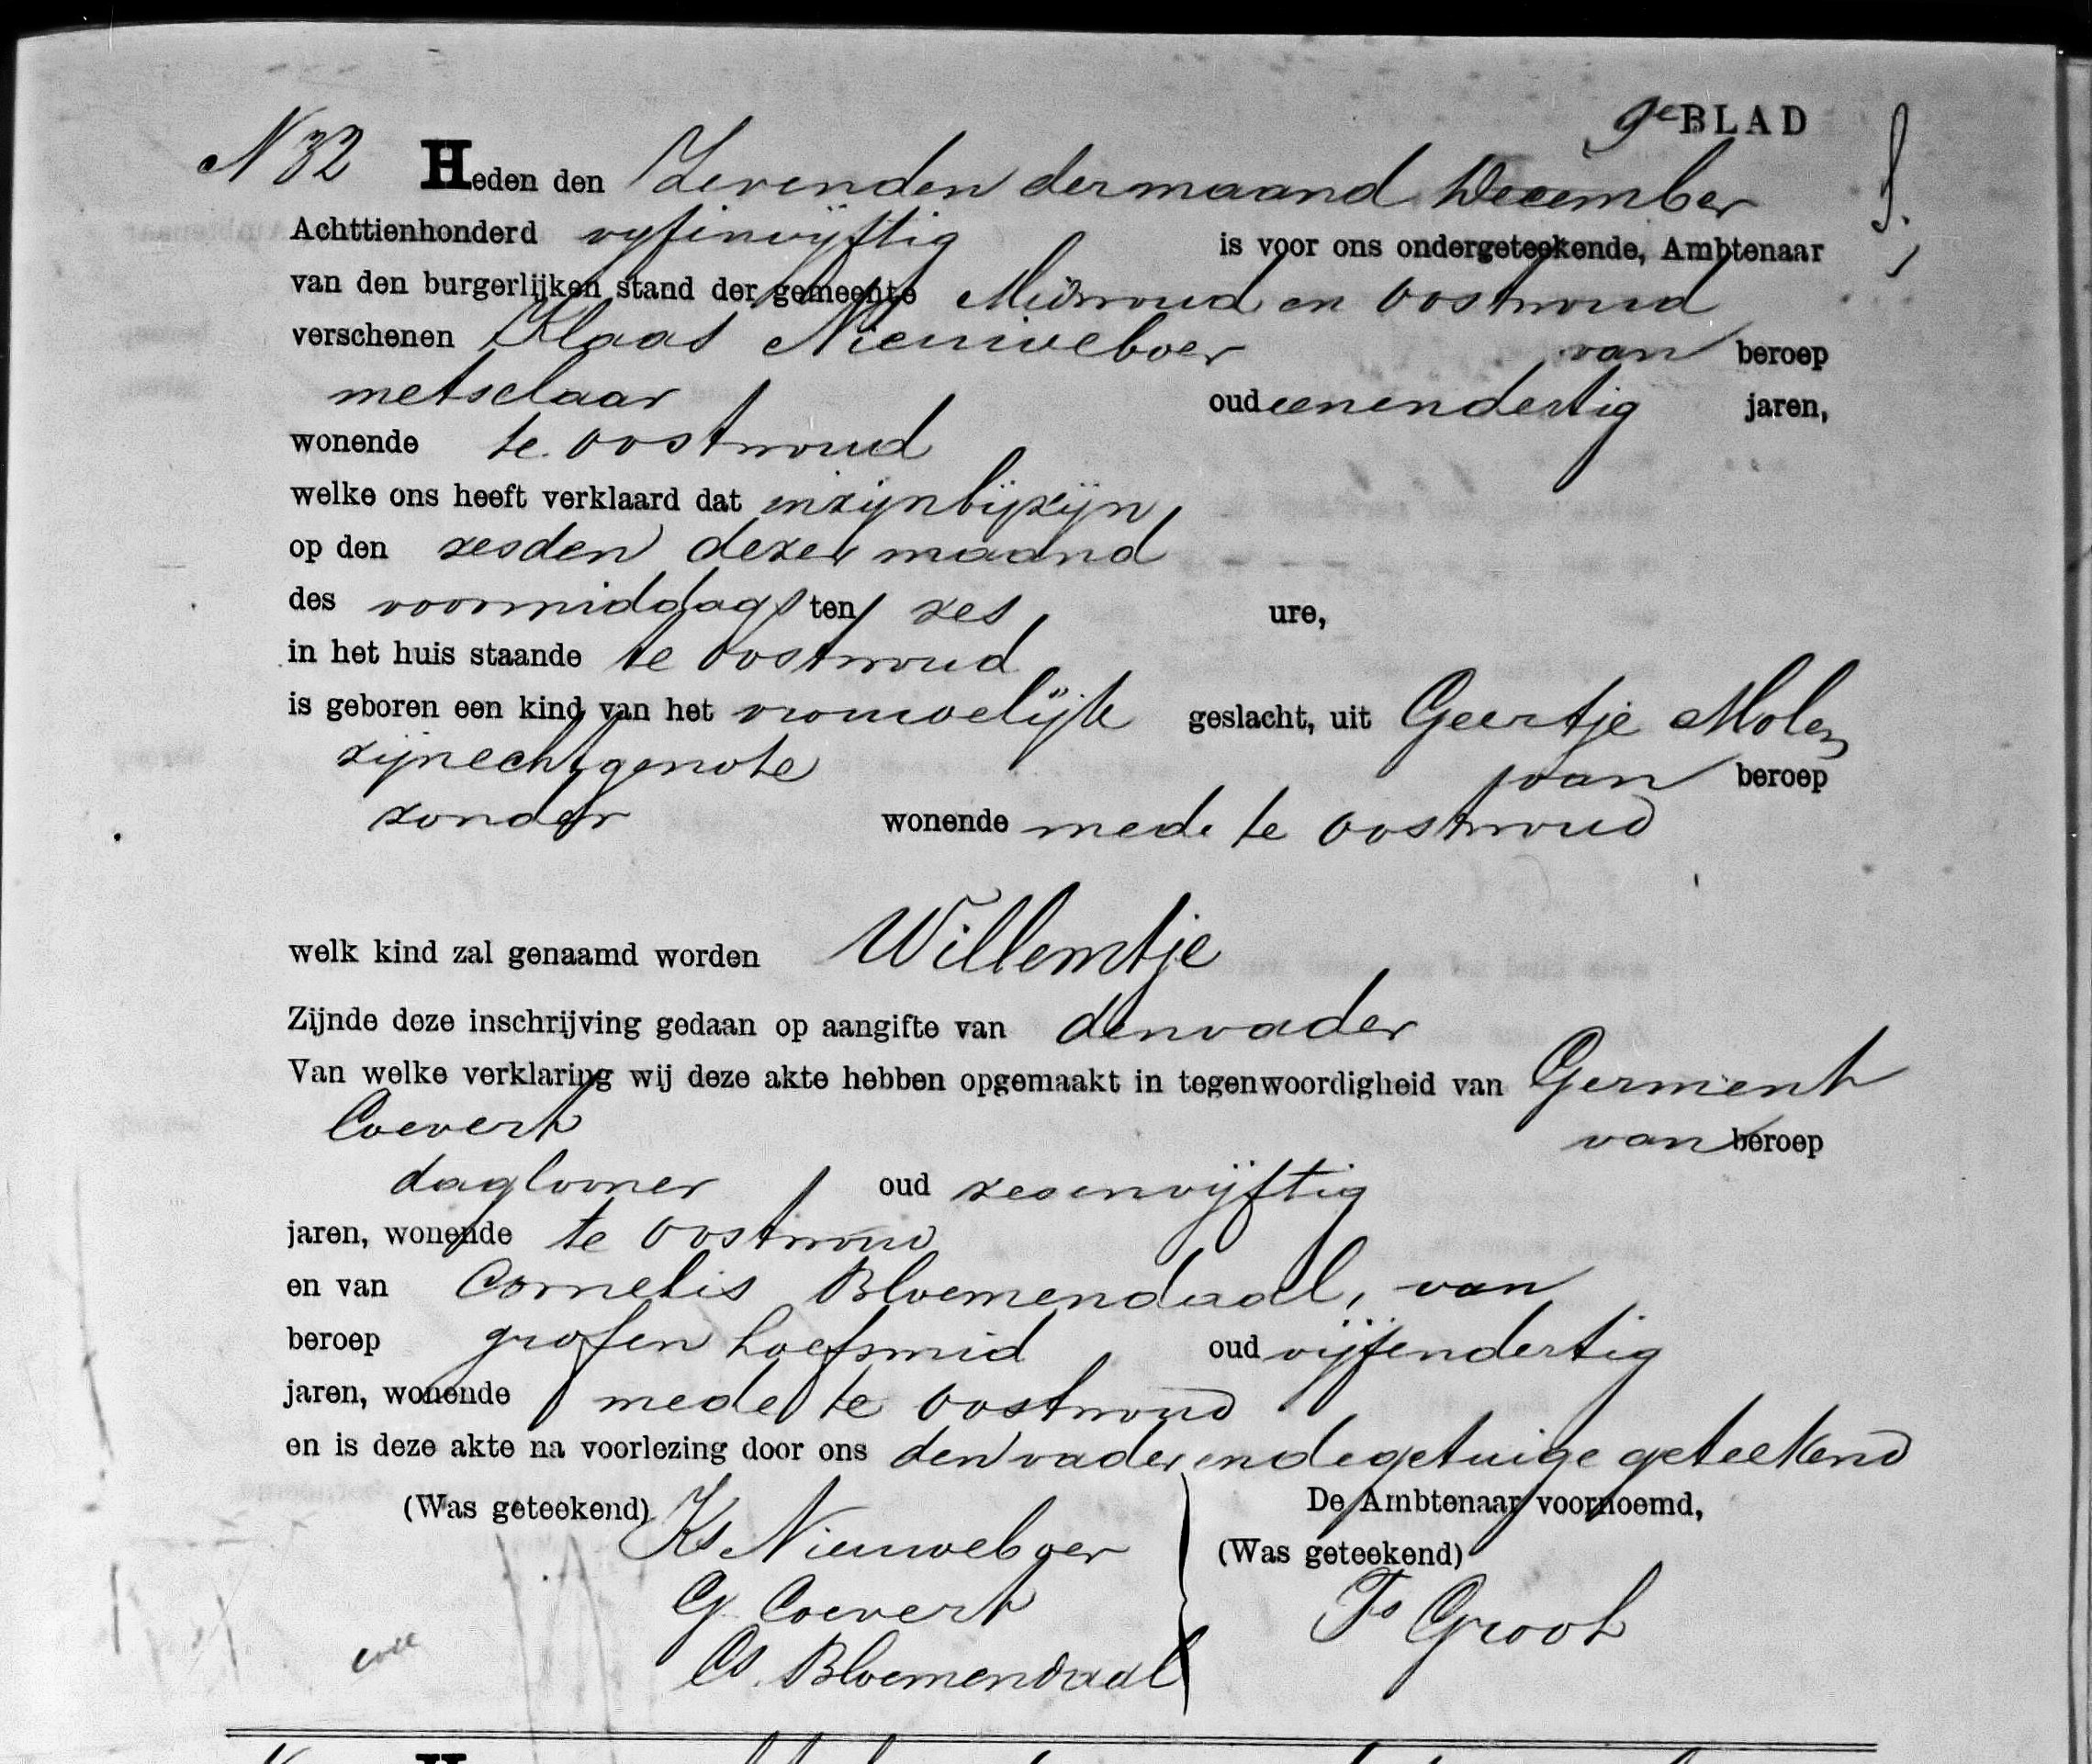 9e BLAD
N 32 Heden den Zevenden der maand December
Achttienhonderd vyfenvijftig is voor ons ondergeteekende, Ambtenaar
van den burgerlijken stand der gemeente Midwoud en Oostwoud
verschenen Klaas Nieuweboer van beroep
metselaar oud eenendertig jaren,
wonende te Oostwoud
welke ons heeft verklaard dat in zijn bijzijn
op den zesden dezer maand
des voormiddags ten zes ure,
in het huis staande te Oostwoud
is geboren een kind van het vrouwelijk geslacht, uit Geertje Molen
zijn echtgenote van beroep
zonder wonende mede te Oostwoud
welk kind zal genaamd worden Willemtje
Zijnde deze inschrijving gedaan op aangifte van den vader
Van welke verklaring wij deze akte hebben opgemaakt in tegenwoordigheid van Germent
Coevert van beroep
daglooner oud zesenvijftig
jaren, wonende te Oostwoud
en van Cornelis Bloemendaal, van
beroep grof en hoefsmid oud vijfendertig
jaren, wonende mede te Oostwoud
en is deze akte na voorlezing door ons den vader en de getuige geteekend
(Was geteekend) Ks Nieuweboer De Ambtenaar voornoemd,
G Coevert (Was geteekend)
Cs. Bloemendaal Groot